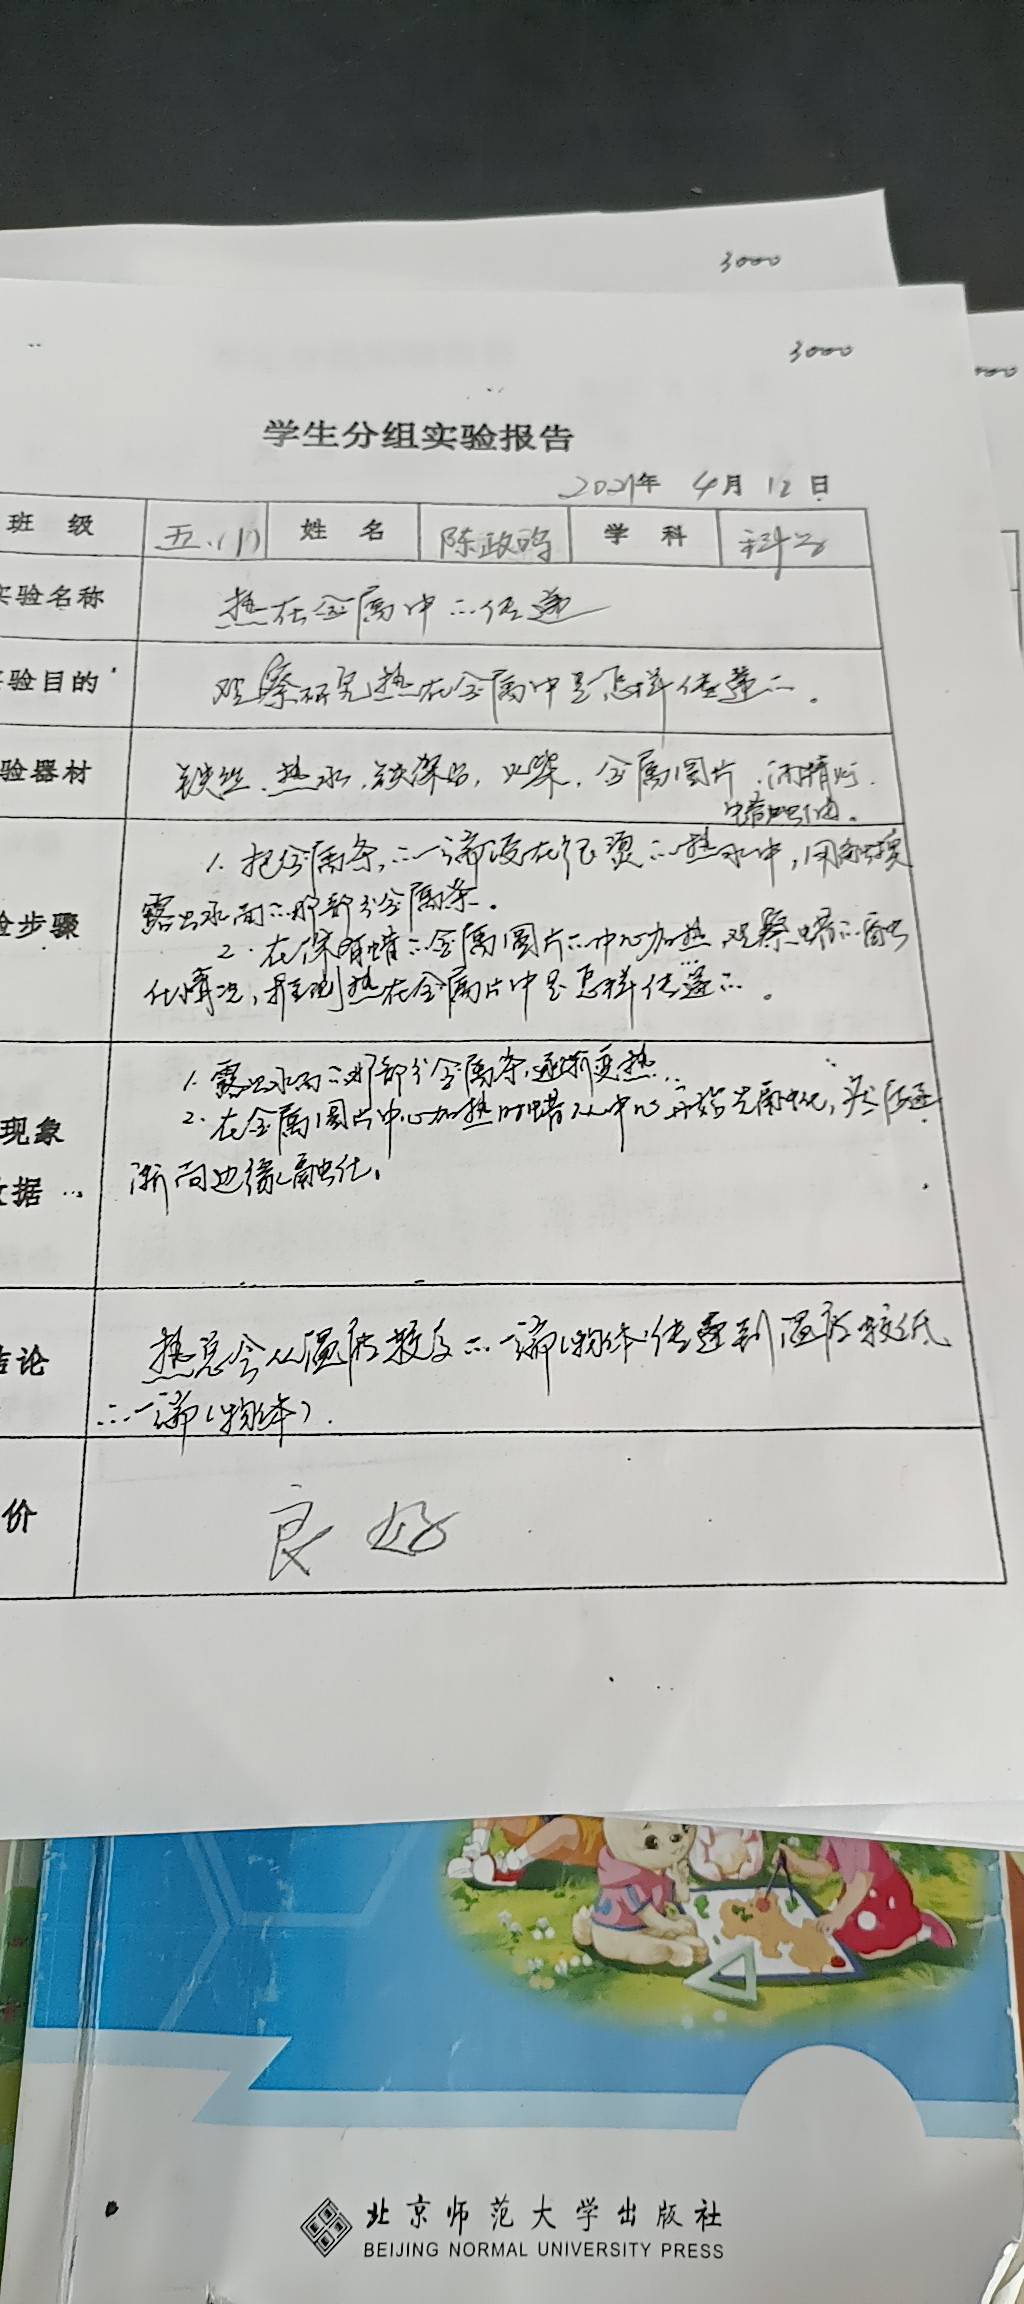 3000
3000
学生分组实验报告
2021年 4月 12日
班 级 五.(1) 姓 名 陈政 学 科 科学
实验名称 热在金属中的传递
验目的 观察研究热在金属中是怎样传递的.
验器材 铁丝.热水.铁架台,火柴,金属圆片.酒精灯.
步骤 1.把金属条的一端浸在很烫的热水中,用手触摸
露出水面的那部分金属条.
2.在保有蜡的金属圆片的中心加热,观察蜡的融
化情况,推测热在金属片中是怎样传递的.
现象 1.露出水面的那部分金属条逐渐变热.
2.在金属圆片中心加热时蜡从中心开始先融化,然后逐
据 渐向边缘融化.
结论 热总会从温度较高的一端(物体)传递到温度较低
的一端(物体).
价 良好
北京师范大学出版社
BEIJING NORMAL UNIVERSITY PRESS